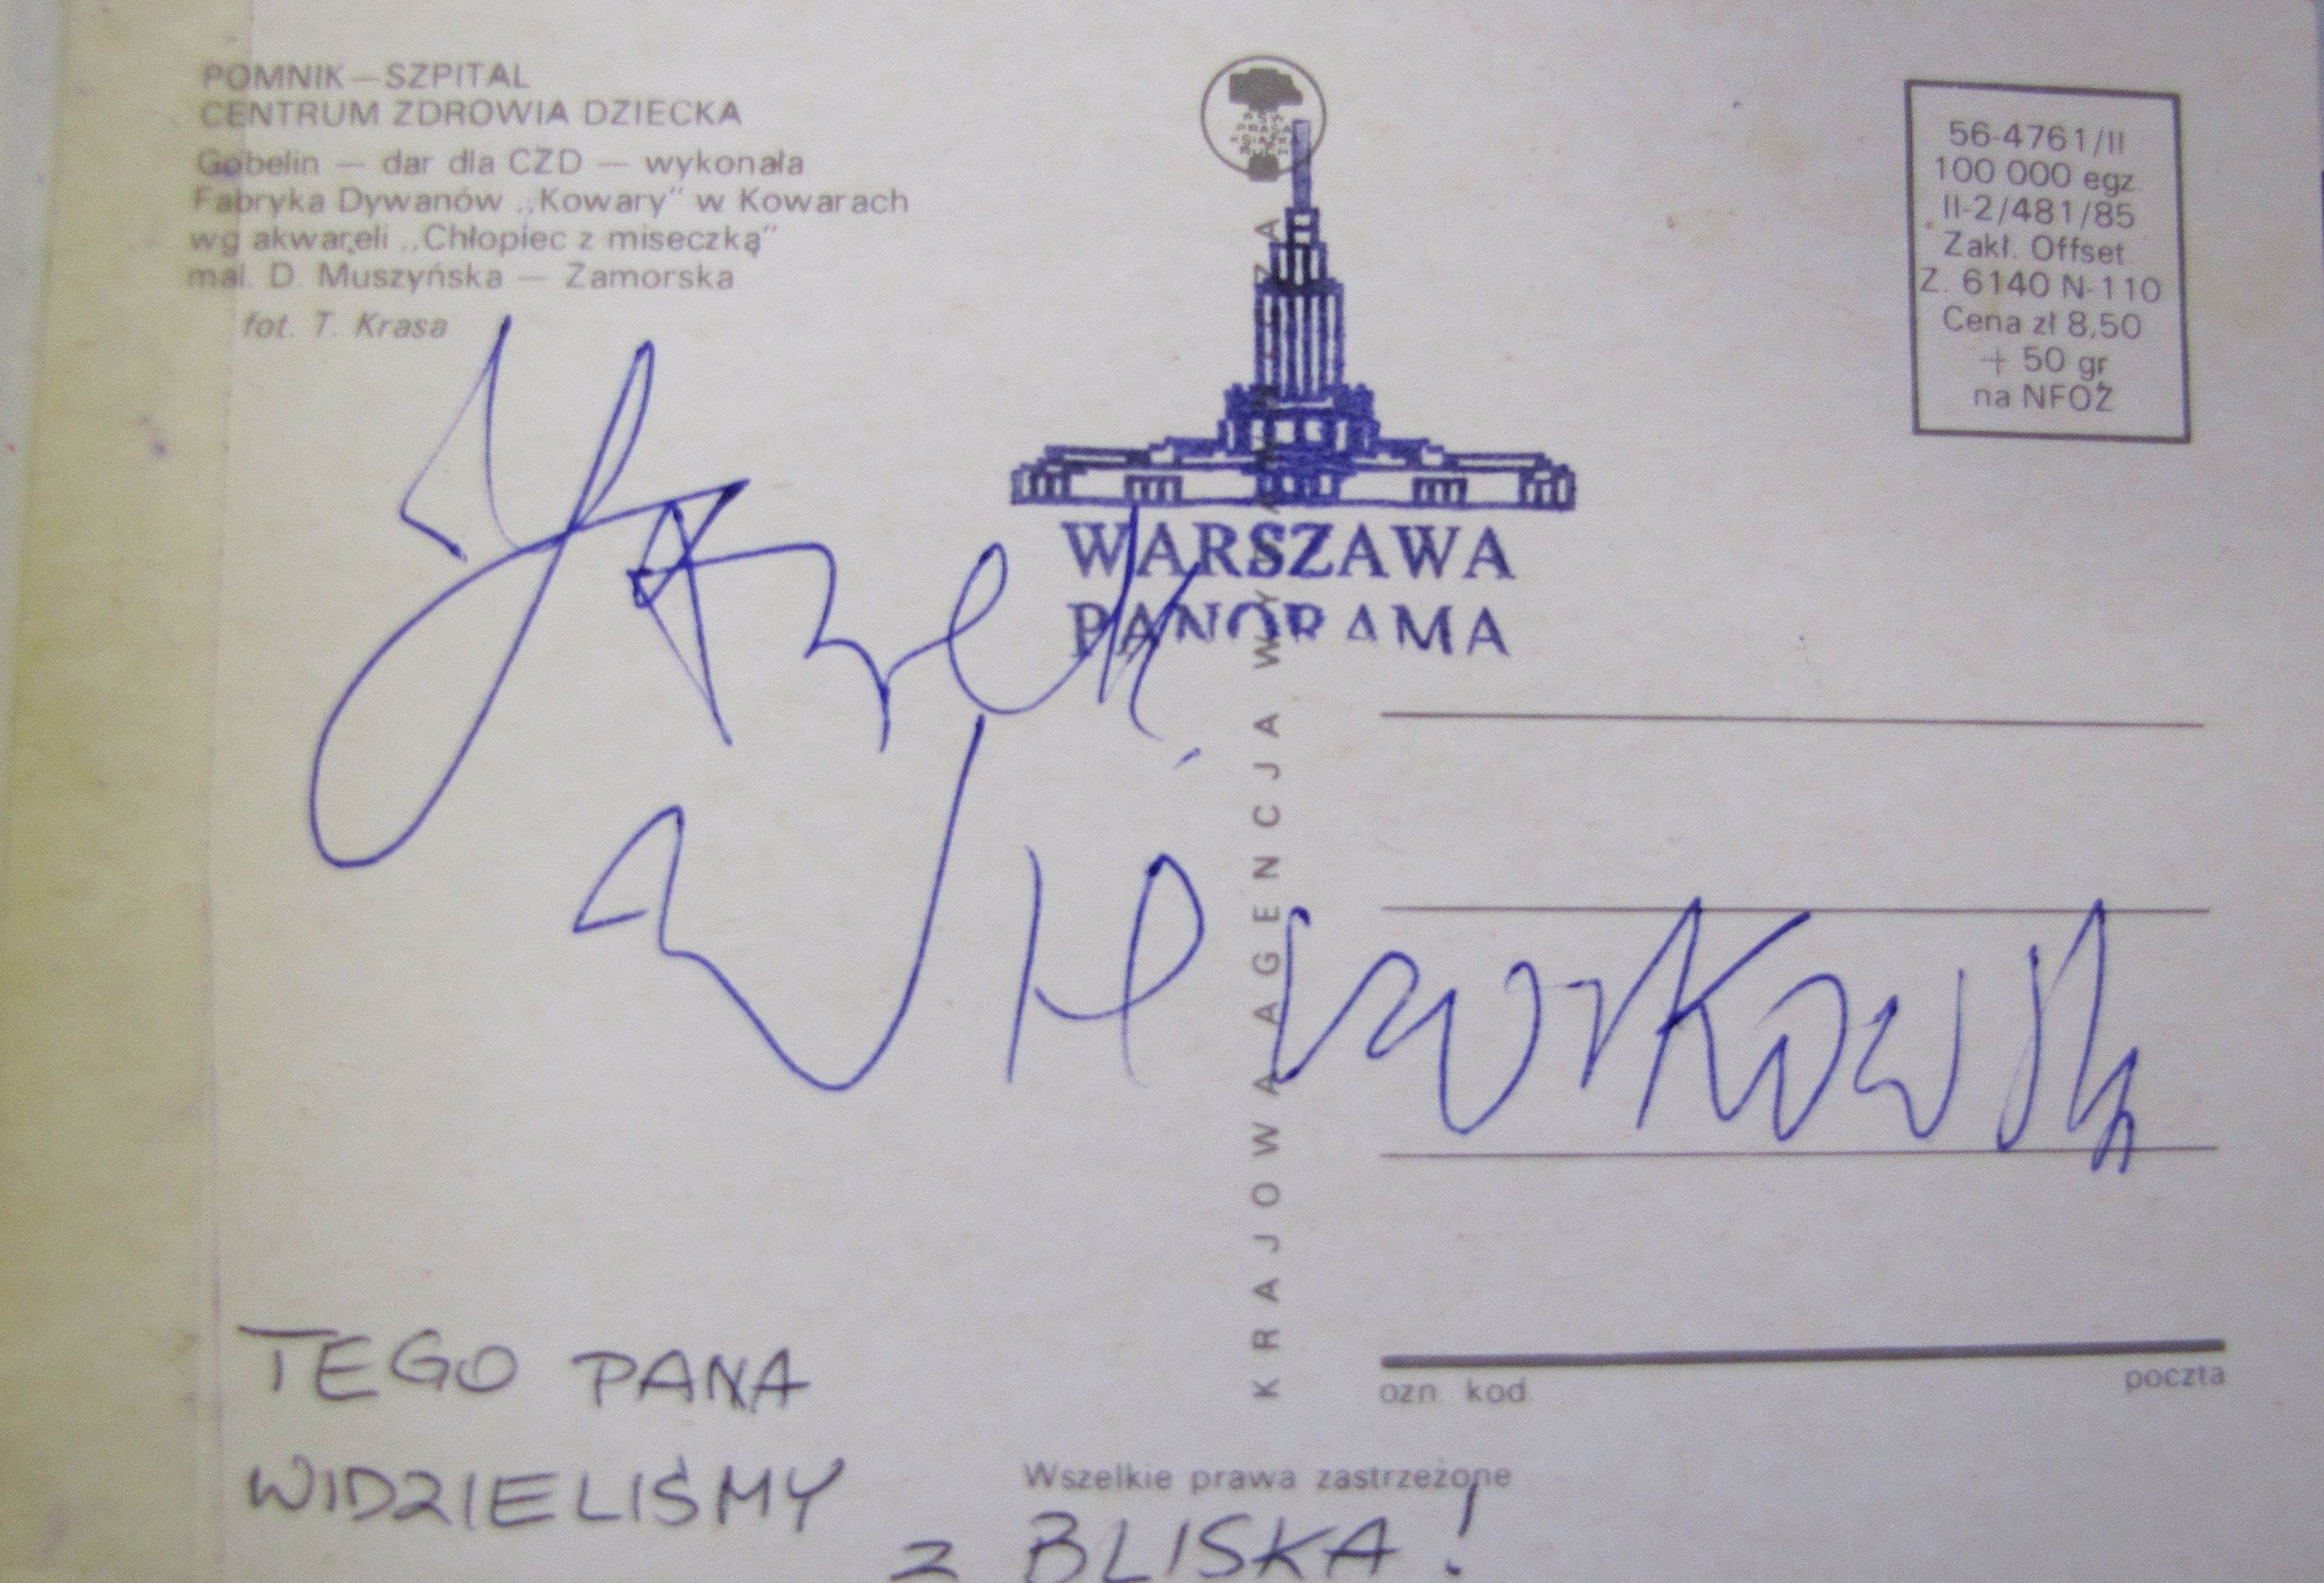 POMNIK—SZPITAL
CENTRUM ZDROWIA DZIECKA
Gobelin — dar dla CZD — wykonała
Fabryka Dywanów „Kowary” w Kowarach
wg akwareli „Chłopiec z miseczką”
mal. D. Muszyńska — Zamorska
fot. T. Krasa
56-4761/II
100 000 egz.
II-2/481/85
Zakł. Offset
Z. 6140 N-110
Cena zł 8,50
+ 50 gr
na NFOZ
WARSZAWA
PANORAMA
KRAJOWA AGENCJA WYDAWNICZA
Jarek
ozn. kod
poczta
Wszelkie prawa zastrzeżone
TEGO PANA
WIDZIELIŚMY
z BLISKA!